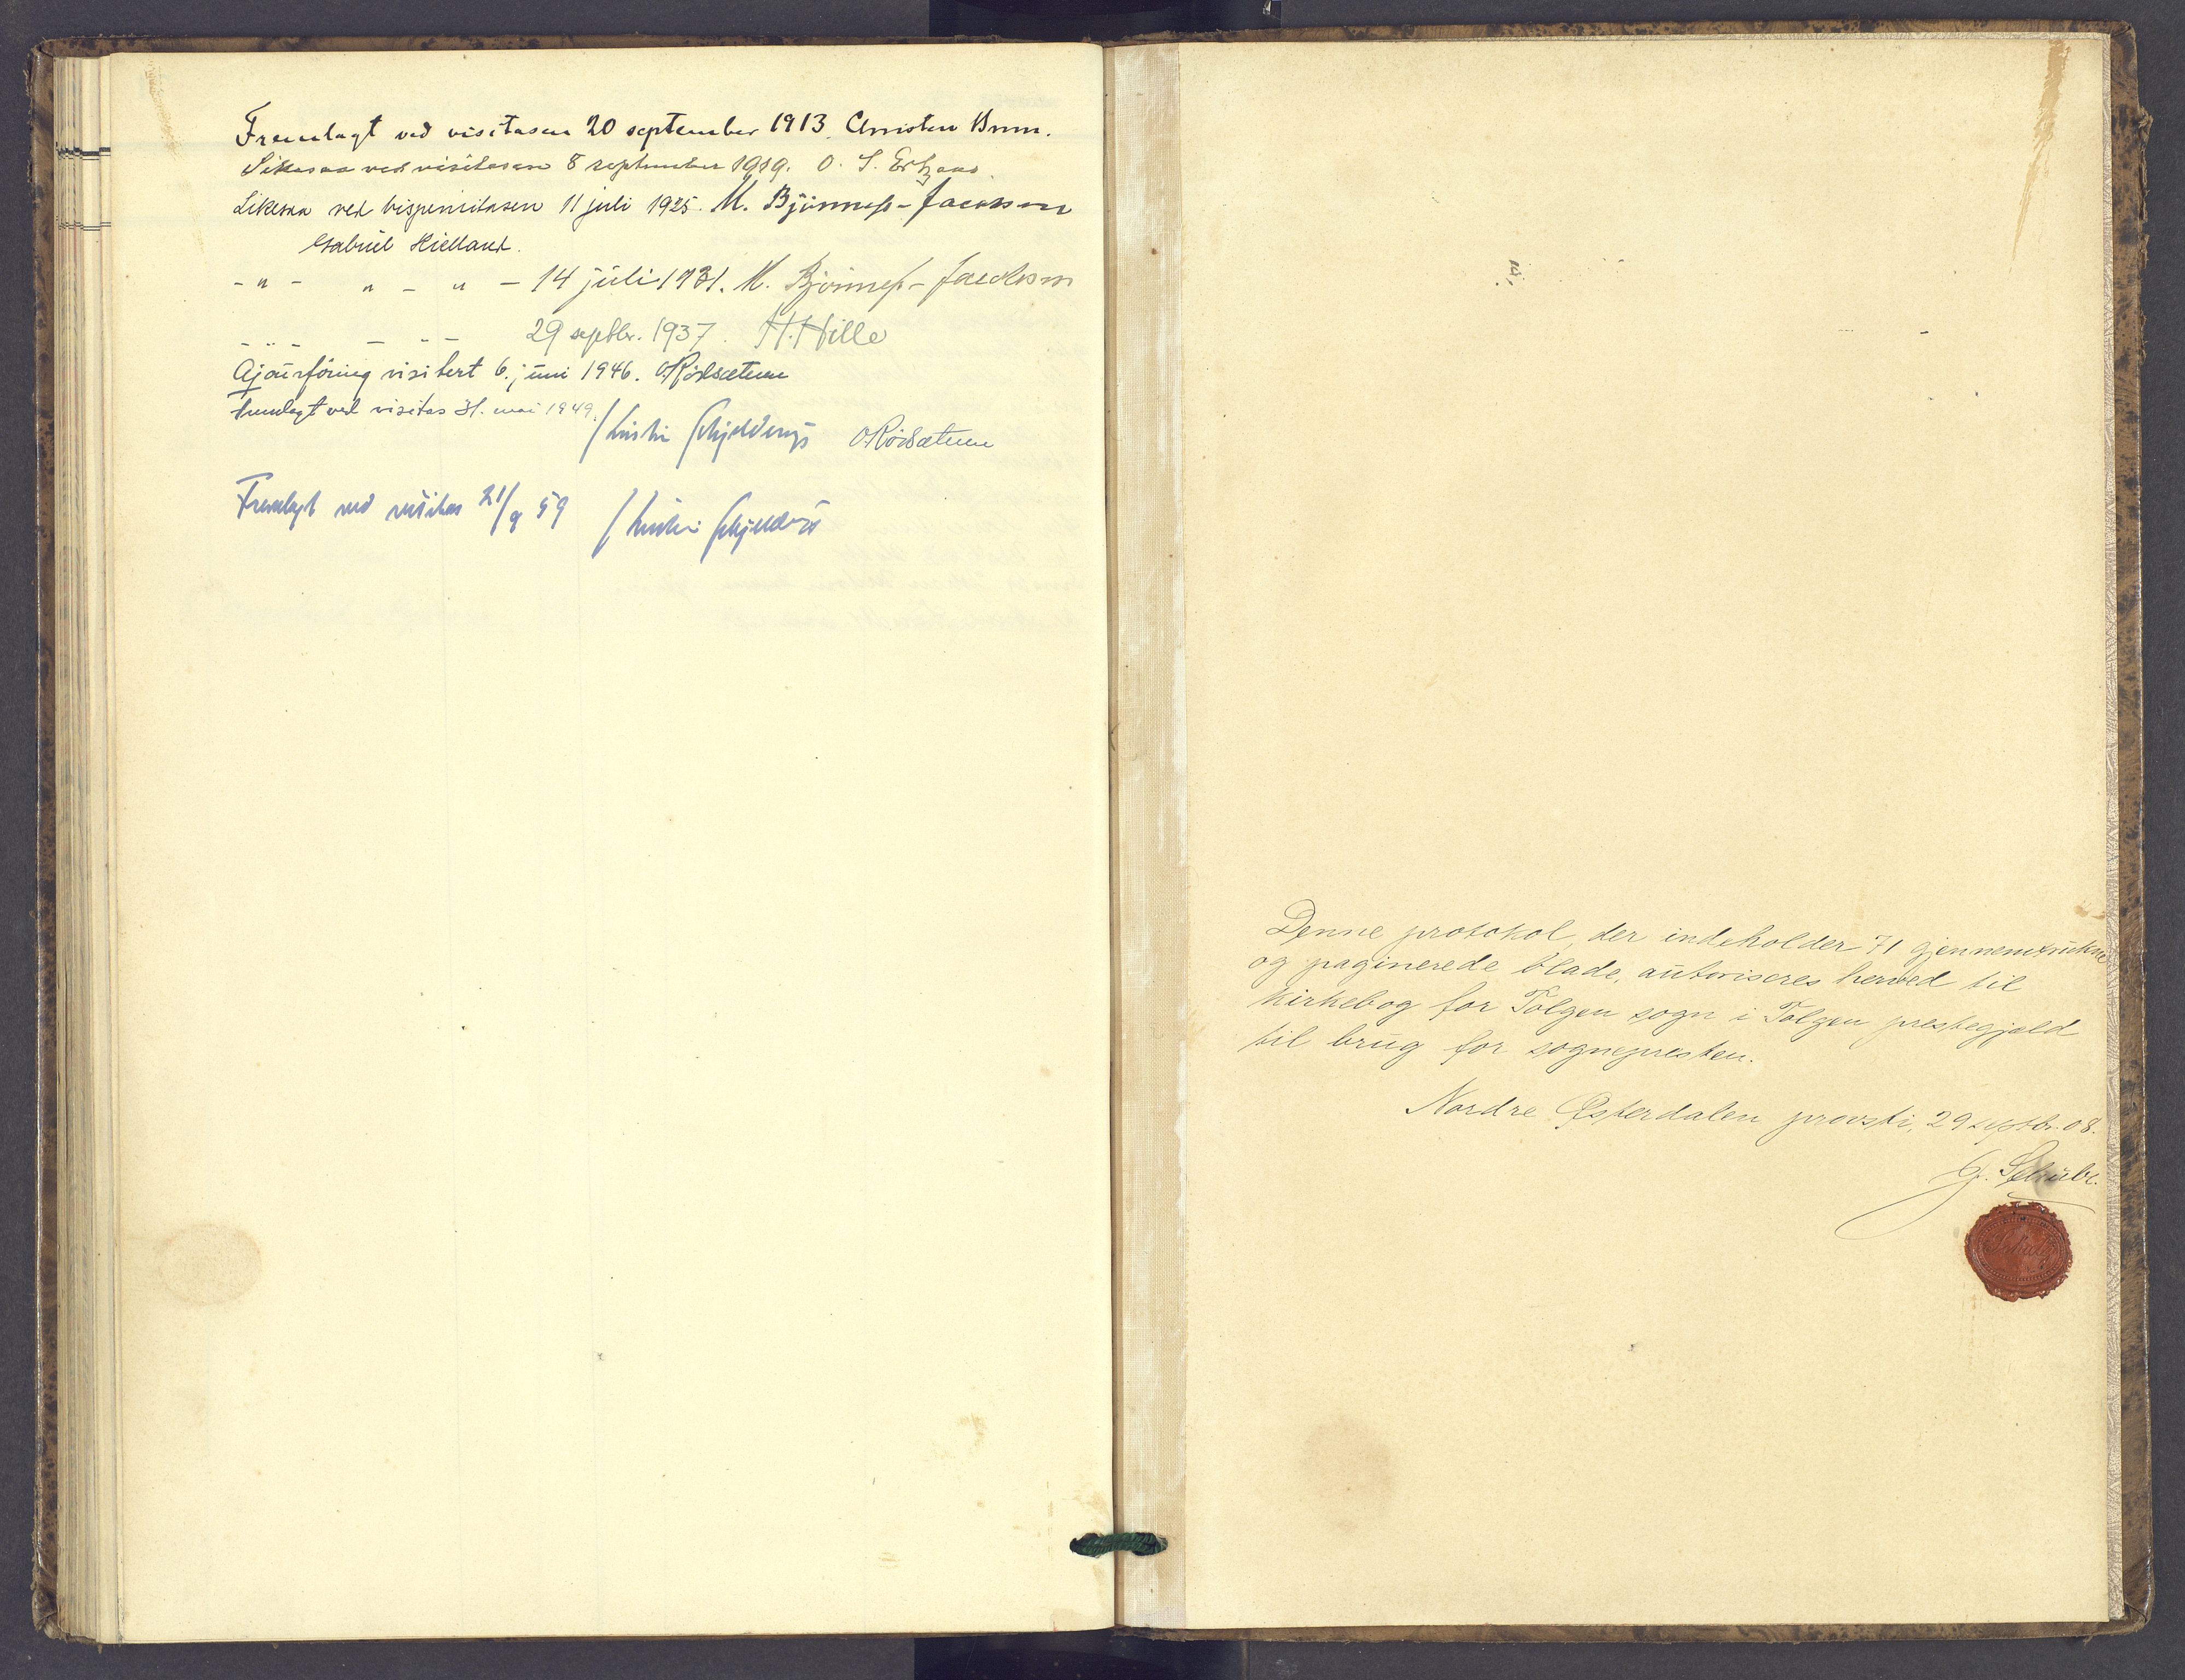 Fremlagt ved visitasen 20 september 1913. Christen Brun.
Likesaa ved visitasen 8 september 1919. O. S.
Likesaa ved bispevisitasen 11 juli 1925. M. Bjønness-Jacobsen
Gabriel Kielland.
- " - " - " - 14 juli 1931. M. Bjønness-Jacobsen
- " - - " - 29 septbr. 1937. H. Hille
Ajourføring visitert 6. juni 1946. O. Rödsætune
Fremlagt ved visitas 31. mai 1949.
/ Kristian Schjelderup O. Rödsætune
Fremlagt ved visitas 21/9 59 / Kristian Schjelderup
Denne protokol, der indeholder 71 gjennemtrukne
og paginerede blade, autoriseres herved til
kirkebog for Tolgen sogn i Tolgen prestegjeld
til brug for sognepresten.
Nordre Østerdalen provsti, 29 septbr. 08.
G. Schübe.